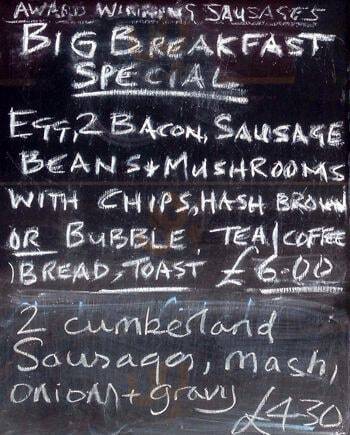 AWARD WINNING SAUSAGES
BIG BREAKFAST
SPECIAL
EGG, 2 BACON, SAUSAGE
BEANS + MUSHROOMS
WITH CHIPS, HASH BROWN
OR BUBBLE, TEA/COFFEE
)BREAD, TOAST £6.00
2 cumberland
Sausages, mash,
onion + gravy
£4.30